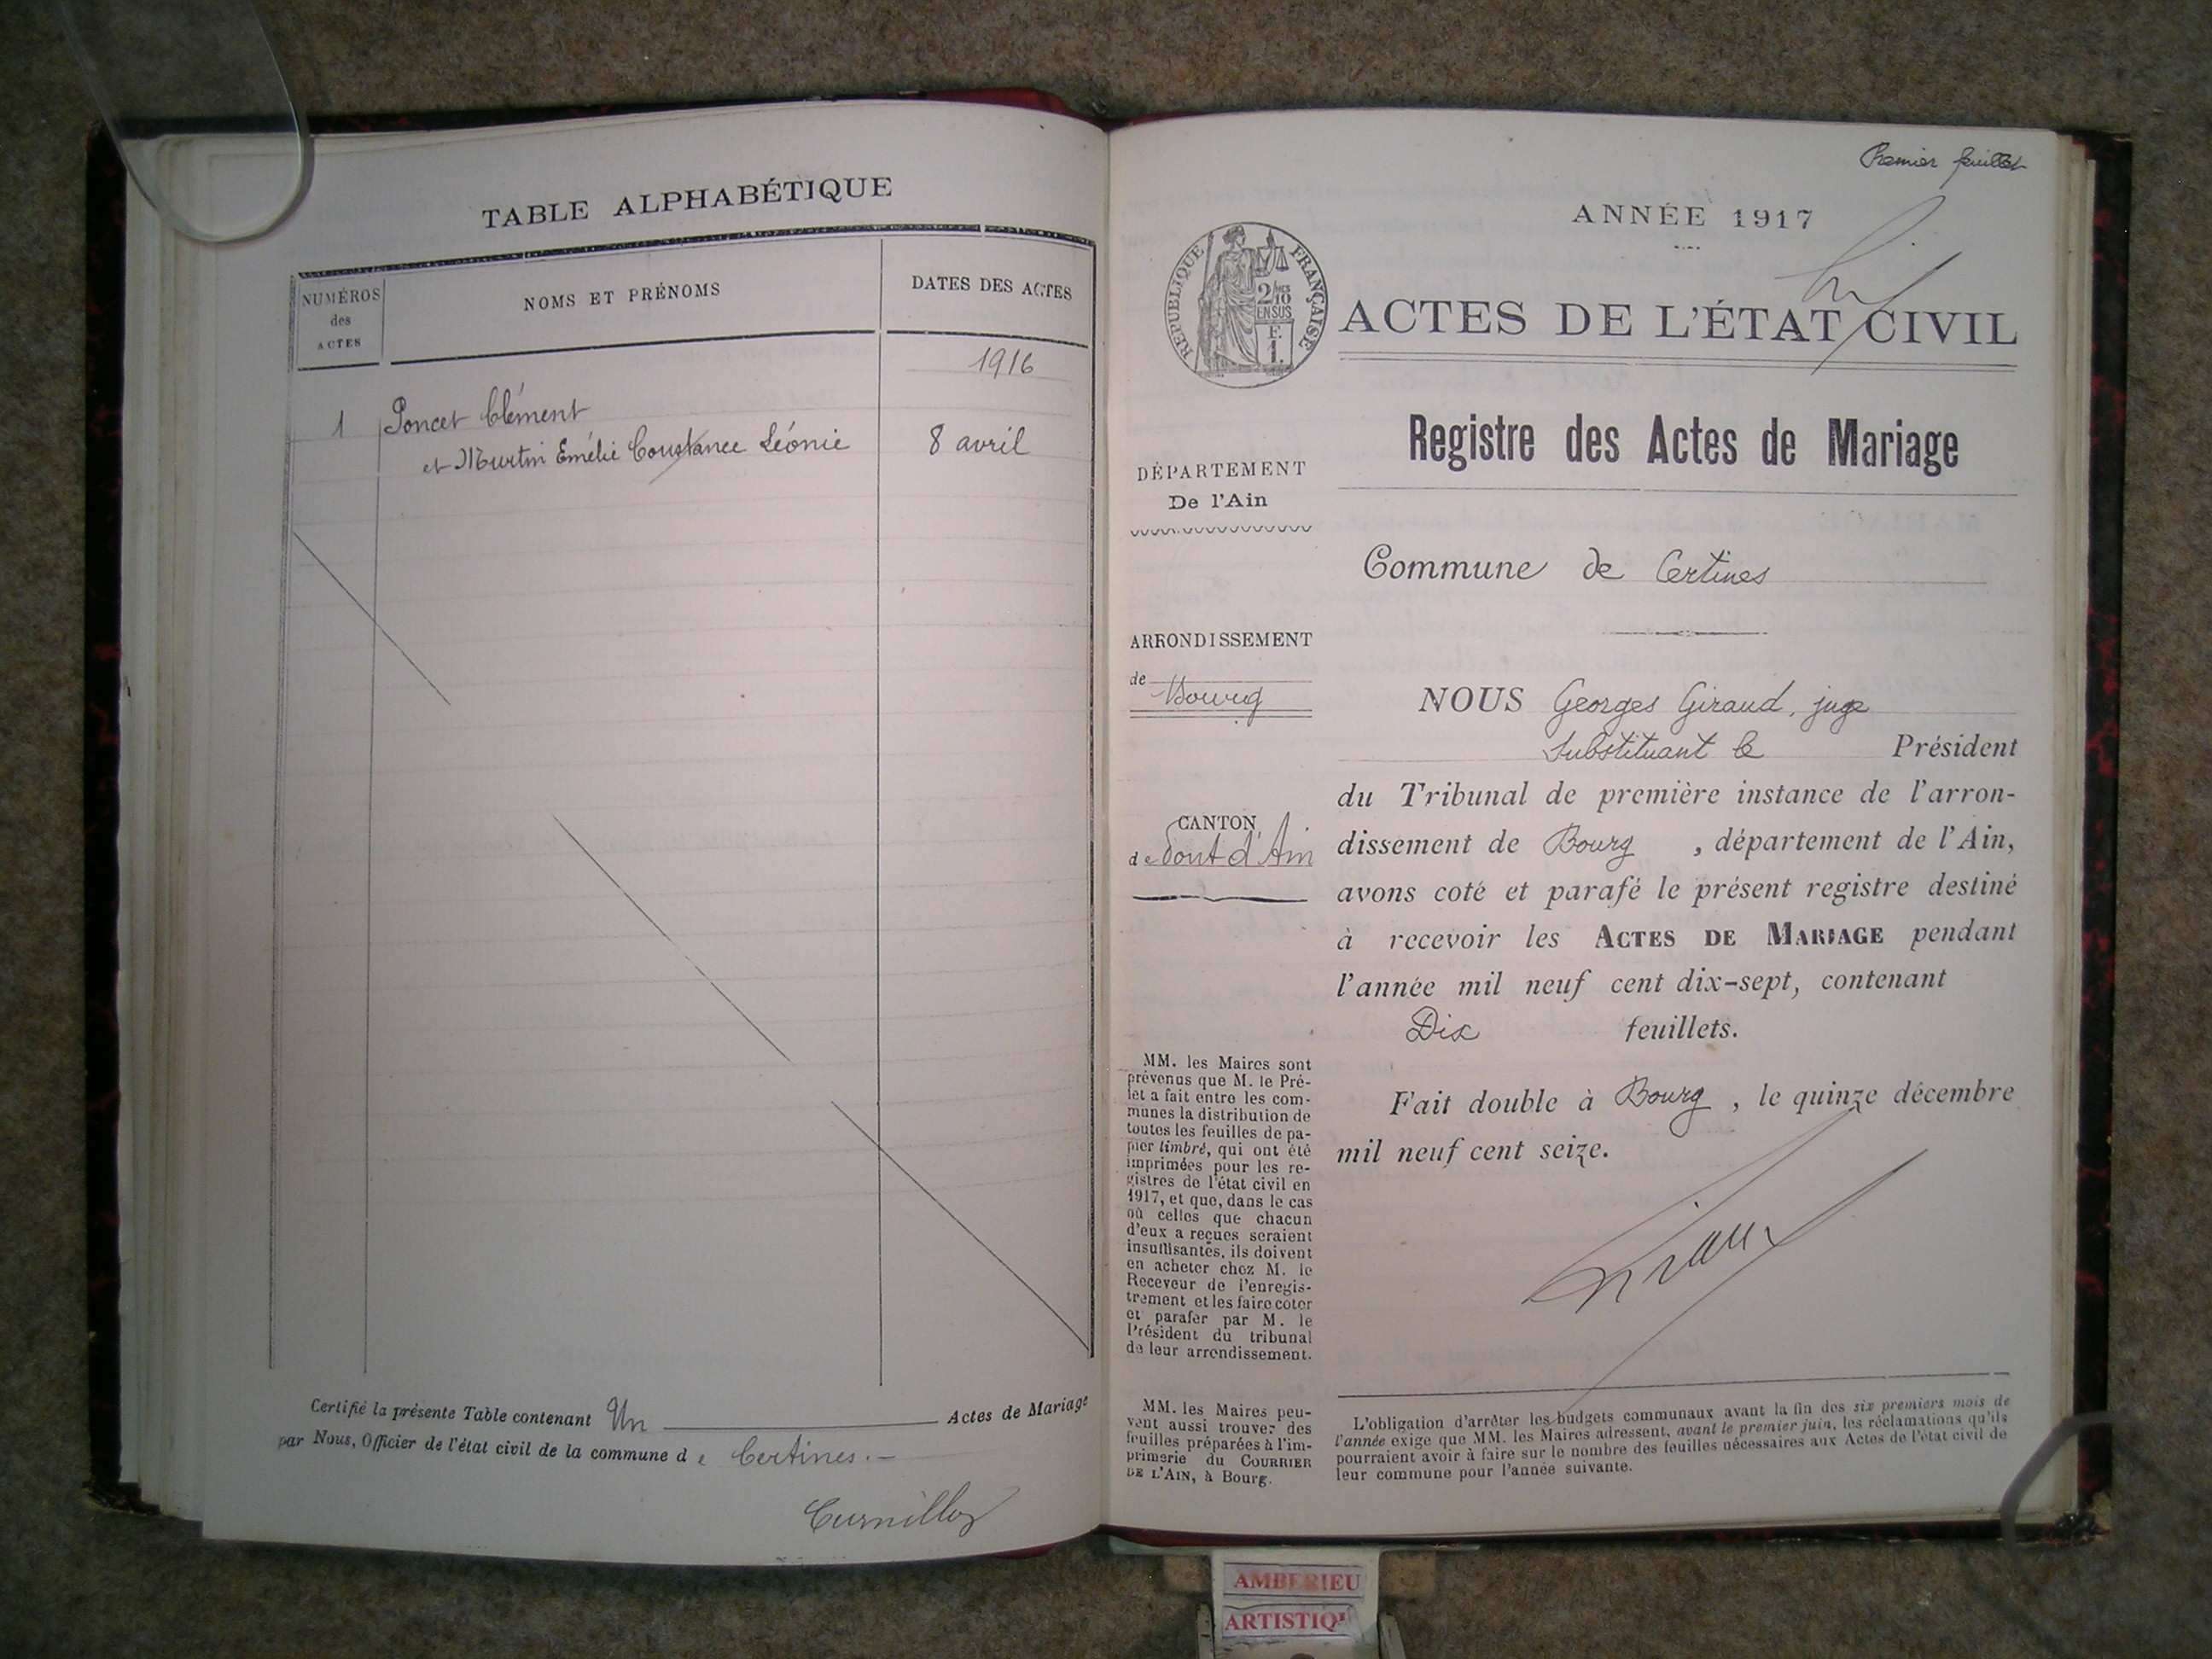 TABLE ALPHABÉTIQUE
NUMÉROS
des
ACTES
NOMS ET PRÉNOMS
DATES DES ACTES
1916
1 Poncet Clément
et Murtin Emélie Constance Léonie 8 avril
Certifié la présente Table contenant Un Actes de Mariage
par Nous, Officier de l'état civil de la commune de Certines.-
Premier feuillet
ANNÉE 1917
RÉPUBLIQUE FRANÇAISE
2/10
EN SUS
F.
1.
ACTES DE L'ÉTAT CIVIL
Registre des Actes de Mariage
DÉPARTEMENT
De l'Ain
Commune de Certines
ARRONDISSEMENT
de Bourg
CANTON
de Pont d'Ain
NOUS Georges Giraud, juge
Substituant le Président
du Tribunal de première instance de l'arron-
dissement de Bourg, département de l'Ain,
avons coté et parafé le présent registre destiné
à recevoir les ACTES DE MARIAGE pendant
l'année mil neuf cent dix-sept, contenant
Dix feuillets.
Fait double à Bourg, le quinze décembre
mil neuf cent seize.
MM. les Maires sont
prévenus que M. le Pré-
fet a fait entre les com-
munes la distribution de
toutes les feuilles de pa-
pier timbré, qui ont été
imprimées pour les re-
gistres de l'état civil en
1917, et que, dans le cas
où celles que chacun
d'eux a reçues seraient
insuffisantes, ils doivent
en acheter chez M. le
Receveur de l'enregis-
trement et les faire coter
et parafer par M. le
Président du tribunal
de leur arrondissement.
MM. les Maires peu-
vent aussi trouver des
feuilles préparées à l'im-
primerie du COURRIER
DE L'AIN, à Bourg.
L'obligation d'arrêter les budgets communaux avant la fin des six premiers mois de
l'année exige que MM. les Maires adressent, avant le premier juin, les réclamations qu'ils
pourraient avoir à faire sur le nombre des feuilles nécessaires aux Actes de l'état civil de
leur commune pour l'année suivante.
AMBERIEU
ARTISTIQ